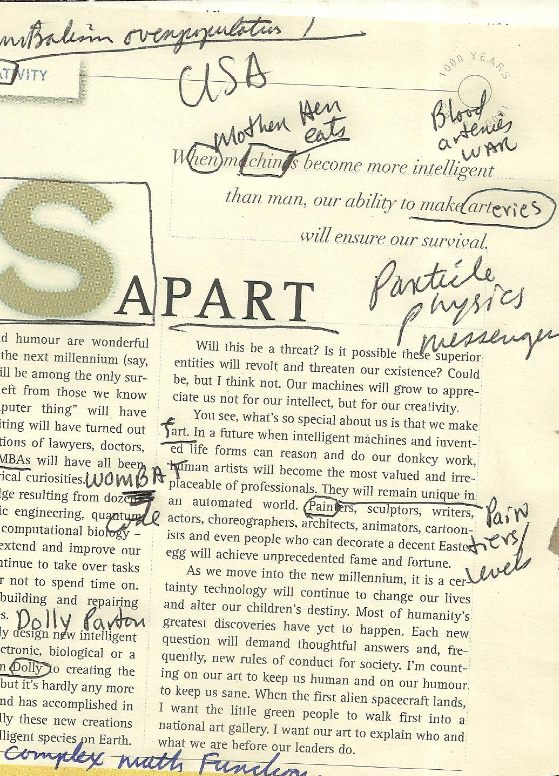 overpopulation !
ATIVITY
USA
1000 YEARS
Mother Hen
eats
Blood
arteries
WAR
When machines become more intelligent
than man, our ability to make arteries
will ensure our survival.
S
APART
Particle
physics
messenger
d humour are wonderful
the next millennium (say,
ill be among the only sur-
eft from those we know
puter thing" will have
iting will have turned out
tions of lawyers, doctors,
MBAs will have all been
rical curiosities.
WOMBAT
ge resulting from dozens
ic engineering, quantum
code
computational biology –
extend and improve our
ntinue to take over tasks
r not to spend time on.
building and repairing
s.
Dolly Parton
ly design new intelligent
ctronic, biological or a
n Dolly to creating the
but it's hardly any more
nd has accomplished in
lly these new creations
lligent species on Earth.
Will this be a threat? Is it possible these superior
entities will revolt and threaten our existence? Could
be, but I think not. Our machines will grow to appre-
ciate us not for intellect, but for our creativity.
You see, what's so special about us is that we make
fart. In a future when intelligent machines and invent-
ed life forms can reason and do our donkey work,
human artists will become the most valued and irre-
placeable of professionals. They will remain unique in
an automated world. Painters, sculptors, writers,
actors, choreographers, architects, animators, cartoon-
ists and even people who can decorate a decent Easter
egg will achieve unprecedented fame and fortune.
Pain
tiers/
levels
As we move into the new millennium, it is a cer-
tainty technology will continue to change our lives
and alter our children's destiny. Most of humanity's
greatest discoveries have yet to happen. Each new
question will demand thoughtful answers and, fre-
quently, new rules of conduct for society. I'm count-
ing on our art to keep us human and on our humour
to keep us sane. When the first alien spacecraft lands,
I want the little green people to walk first into a
national art gallery. I want our art to explain who and
what we are before our leaders do.
complex math Function